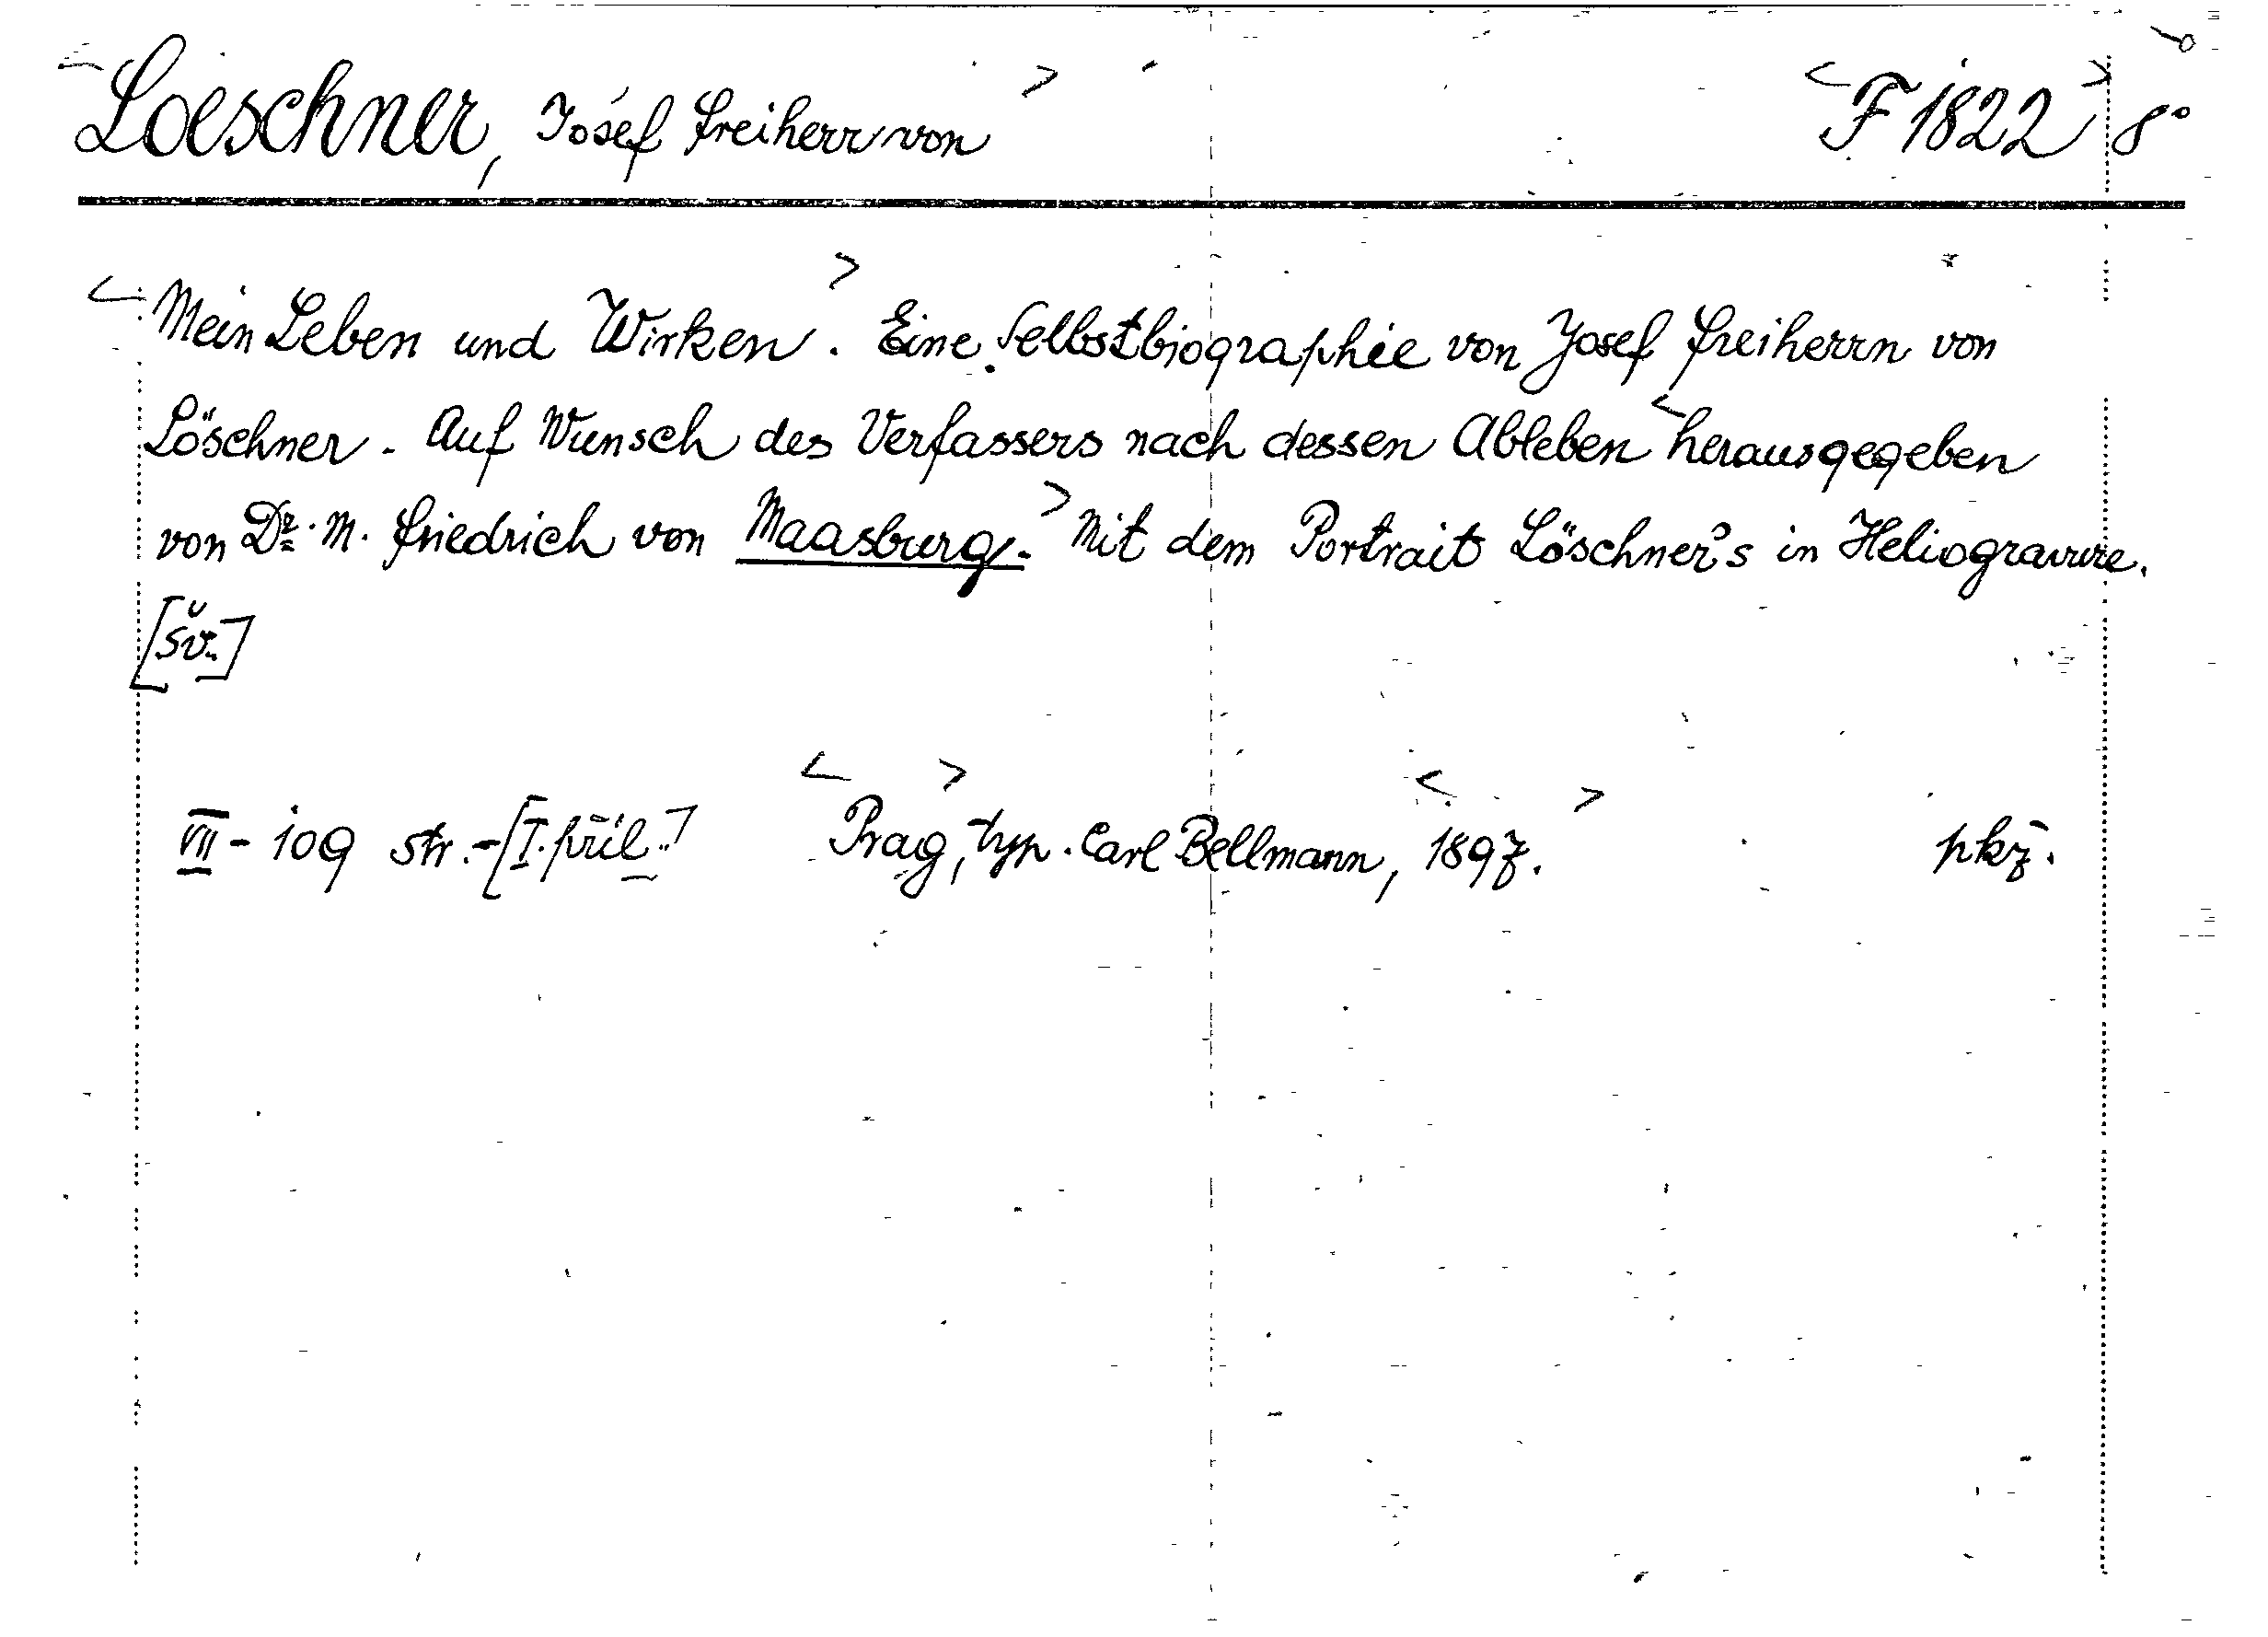 Loeschner, Josef Freiherr von F 1822 8°
Mein Leben und Wirken. Eine Selbstbiographie von Josef Freiherrn von
Löschner. Auf Wunsch des Verfassers nach dessen Ableben herausgegeben
von Dr. M. Friedrich von Maasburg. Mit dem Portrait Löschner's in Heliogravure.
[šv.]
VII - 109 str. - [I. příl.] Prag, typ. Carl Bellmann, 1897. pkž.